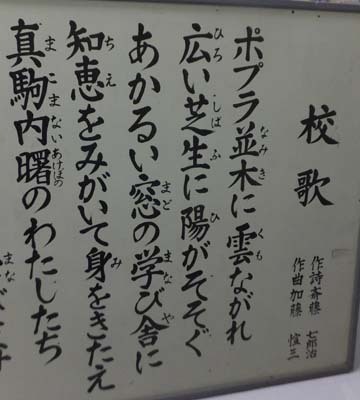 校歌
作詩 斎藤 七郎治
作曲 加藤 愃三
ポプラ並木に雲ながれ
広い芝生に陽がそそぐ
あかるい窓の学び舎に
知恵をみがいて身をきたえ
真駒内曙のわたしたち